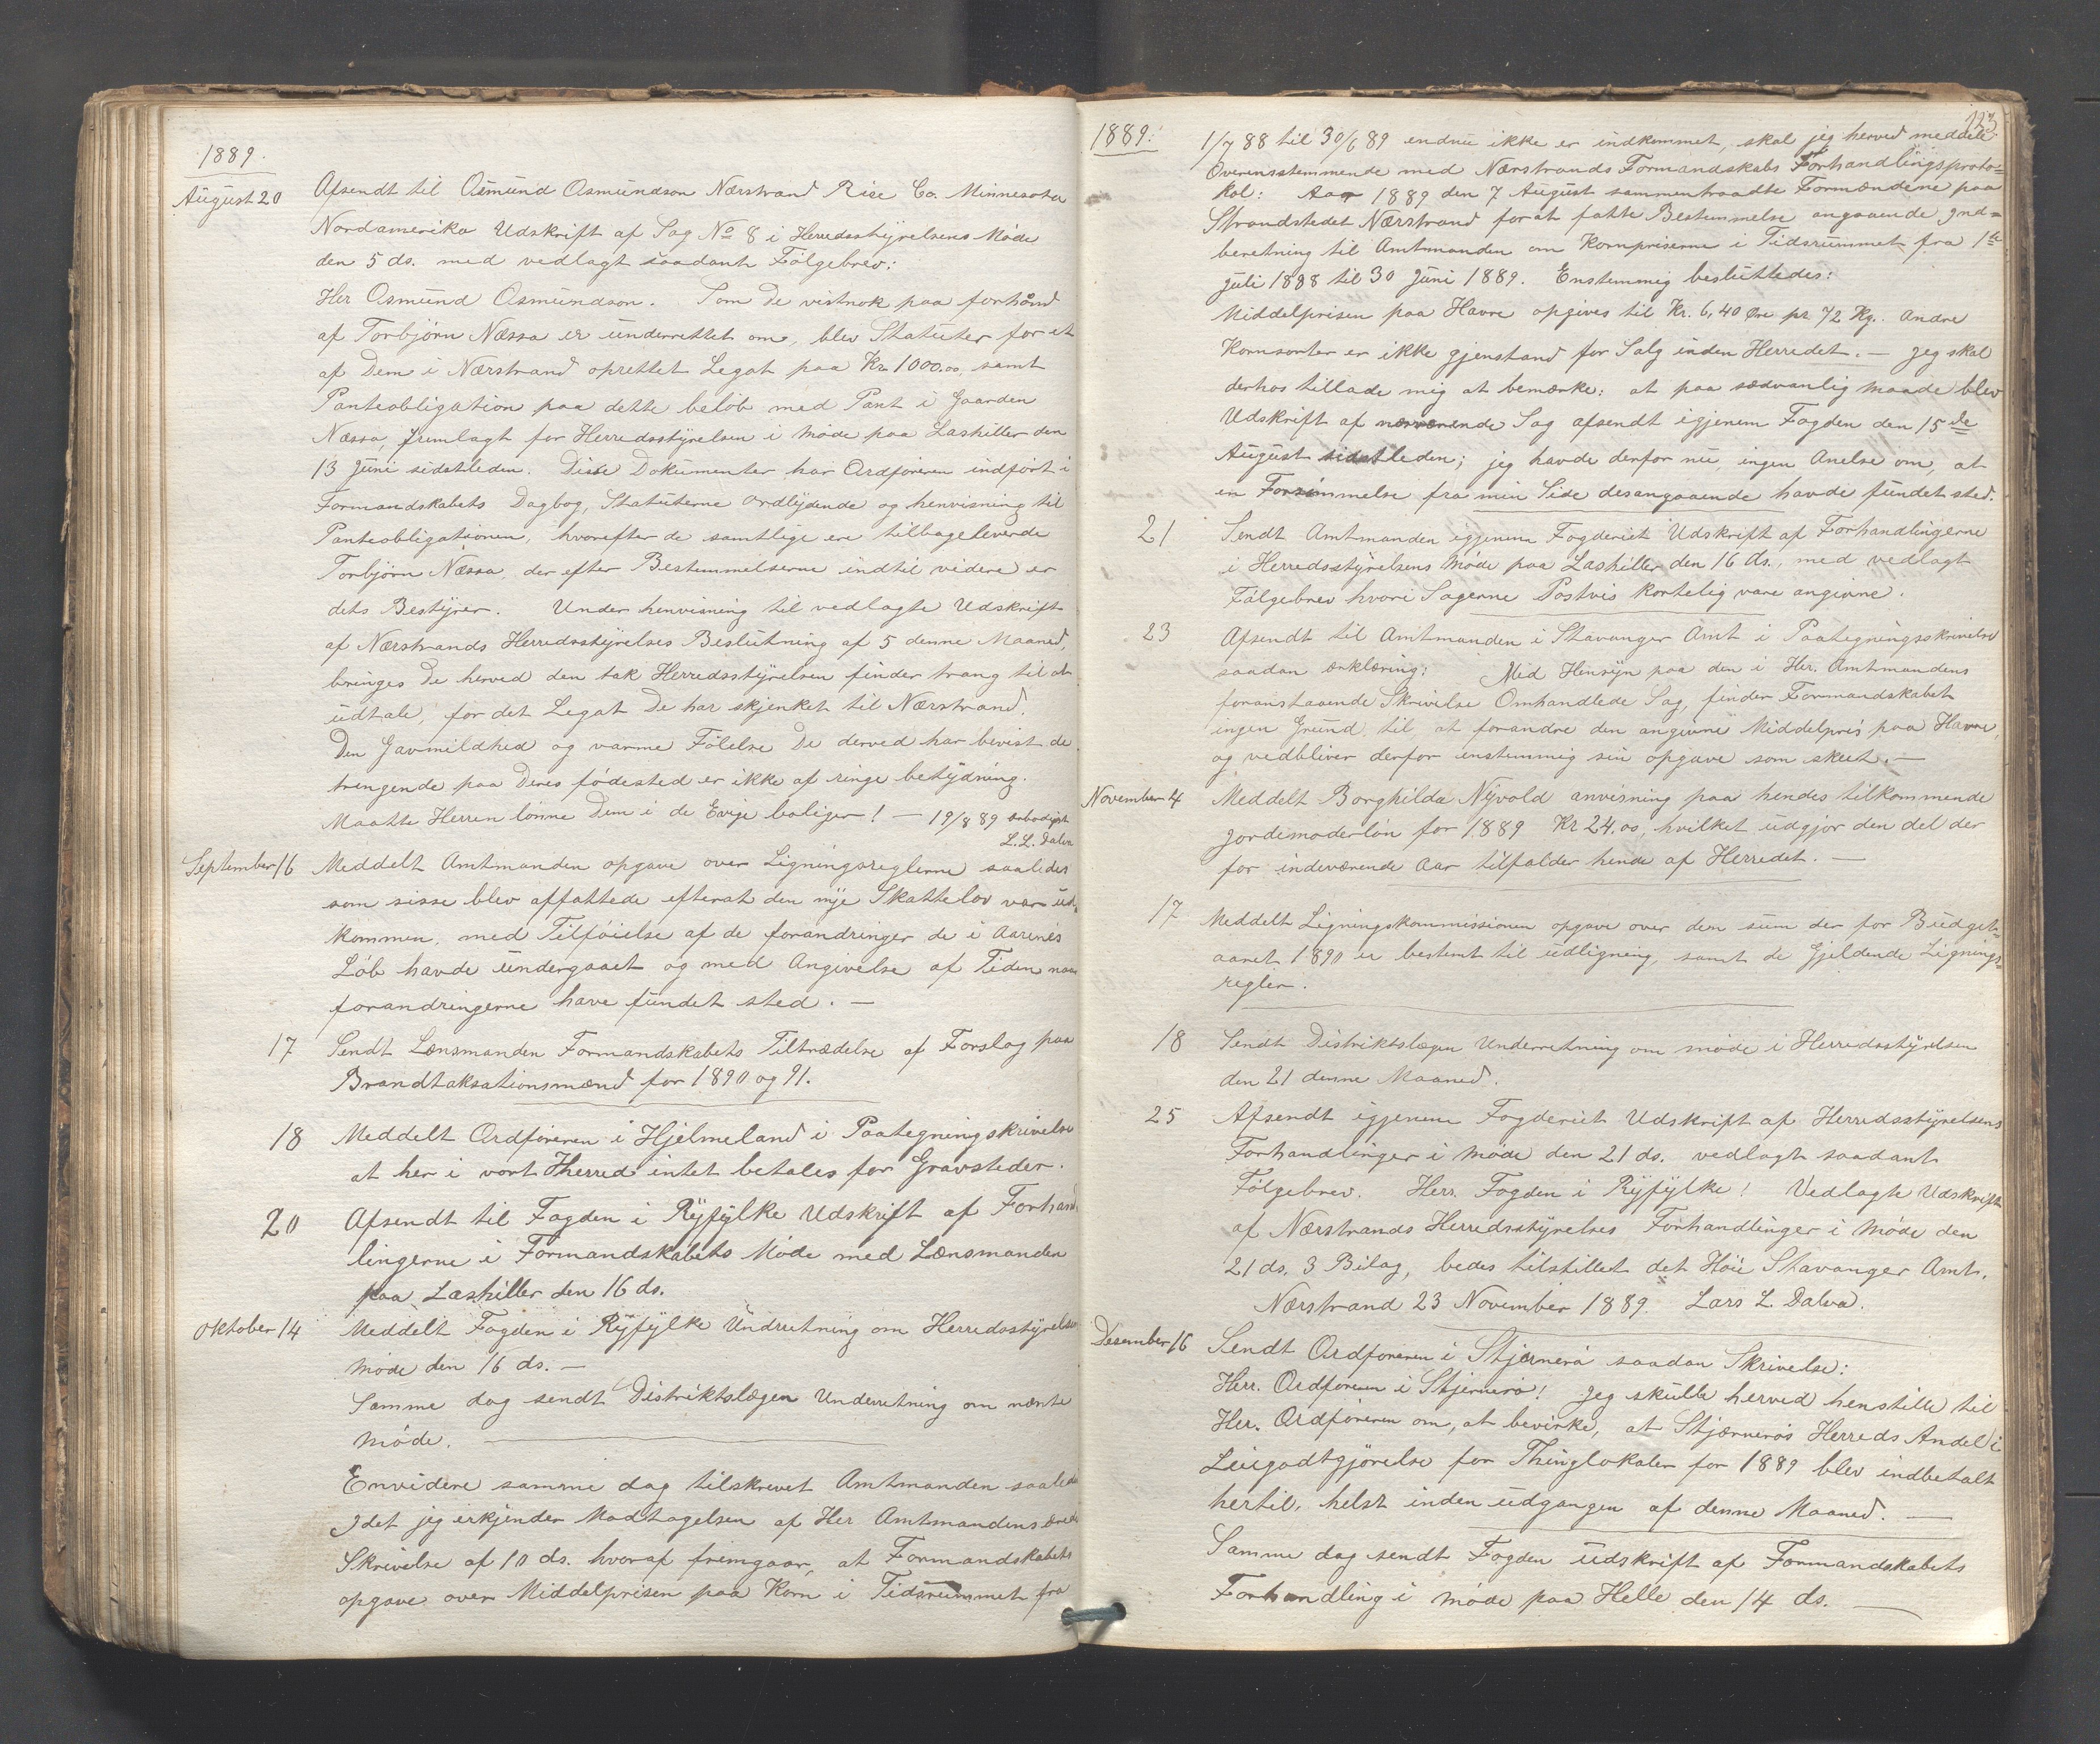 1889.
August 20 Afsendt til Osmund Osmundson Nærstrand Rise Co. Minnesota
Nordamerika Udskrift af Sag No 8 i Herredsstyrelsens Møde
den 5 ds. med vedlagt saadant Følgebrev:
Her Osmund Osmundson. Som De vistnok paa forhånd
af Torbjørn Næssa er underrettet om, blev Statuter for et
af Dem i Nærstrand oprettet Legat paa Kr. 1000.00, samt
Panteobligation paa dette beløb med Pant i Gaarden
Næssa, fremlagt for Herredsstyrelsen i Møde paa Lashiller den
13 Juni sidstleden. Disse Dokumenter har Ordføreren indført i
Formandskabets Dagbog, Statuterne ordlydende og henvisning til
Panteobligationen, hvorefter de samtlige ere tilbageleverde
Torbjørn Næssa, der efter Bestemmelserne indtil videre er
dets Bestyrer. Under henvisning til vedlagte Udskrift
af Nærstrands Herredsstyrelses Beslutning af 5 denne Maaned,
bringes De herved den tak Herredsstyrelsen finder trang til at
udtale, for det Legat De har skjenket til Nærstrand.
Den Gavmildhed og varme Følelse De derved har bevist de
trengende paa Deres fødested er ikke af ringe betydning.
Maatte Herren lønne Dem i de Evige boliger! — 19/8 89 ærbødigst
L. L. Dalva
September 16 Meddelt Amtmanden opgave over Ligningsreglerne saaledes
som sisse blev affattede efterat den nye Skattelov var ud-
kommen, med Tilføielse af de forandringer de i Aarenes
Løb havde undergaaet og med Angivelse af Tiden naar
forandringerne have fundet sted. —
17 Sendt Lensmanden Formandskabets Tiltrædelse af Forslag paa
Brandtaksationsmænd for 1890 og 91.
18 Meddelt Ordføreren i Hjelmeland i Paategningskrivelse
at her i vort Herred intet betales for Gravsteder.
20 Afsendt til Fogden i Ryfylke Udskrift af Forhand-
lingerne i Formandskabets Møde med Lænsmanden
paa Lashiller den 16 ds.
Oktober 14 Meddelt Fogden i Ryfylke Undrretning om Herredsstyrelse
møde den 16 ds. —
Samme dag sendt Distriktslægen Underretning om nævnte
møde.
Envidere samme dag tilskrevet Amtmanden saaledes
Idet jeg erkjender Modtagelsen af Her Amtmandens ærede
Skrivelse af 10 ds. hvoraf fremgaar, at Formandskabets
opgave over Middelprisen paa Korn i Tidsrummet fra
123
1889.
1/7 88 til 30/6 89 endnu ikke er indkommet, skal jeg herved meddele
Overensstemmende med Nærstrands Formandskabs Forhandlingsproto-
kol: Aar 1889 den 7 August sammentraadte Formændene paa
Strandstedet Nærstrand for at fatte Bestemmelse angaaende Ind-
beretning til Amtmanden om Kornpriserne i Tidsrummet fra 1te
Juli 1888 til 30 Juni 1889. Enstemmig besluttedes:
Middelprisen paa Havre opgives til Kr. 6,40 Øre pr 72 Kg. Andre
Kornsorter er ikke gjenstand for Salg inden Herredet. — Jeg skal
derhos tillade mig at bemærke: at paa sædvanlig Maade blev
Udskrift af nærværende Sag afsendt igjenem Fogden den 15de
August sidstleden; jeg havde derfor nu ingen Anelse om, at
en Forsømmelse fra min Side desangaaende havde fundet sted.
21 Sendt Amtmanden igjenem Fogderiet Udskrift af Forhandlingerne
i Herredsstyrelsens Møde paa Lashiller den 16 ds., med vedlagt
Følgebrev hvori Sagerne Postvis kortelig vare angivne.
23 Afsendt til Amtmanden i Stavanger Amt i Paategningsskrivelse
saadan erklæring: Med Hensyn paa den i Hr. Amtmandens
foranstaaende Skrivelse Omhandlede Sag, finder Formandskabet
ingen Grund til at forandre den angivne Middelpris paa Havre,
og vedbliver derfor enstemmig sin opgave som skeet. —
November 4 Meddelt Borghilda Nyvold anvisning paa hendes tilkommende
Jordemoderløn for 1889 Kr 24.00, hvilket udgjør den del der
for indeværende Aar tilfalder hende af Herredet. —
17 Meddelt Ligningskommissionen opgave over den sum der for Budget-
aaret 1890 er bestemt til udligning, samt de Gjeldende Lignings-
regler.
18 Sendt Distriktslægen Underretning om møde i Herredsstyrelsen
den 21 denne Maaned.
25 Afsendt igjenem Fogderiet Udskrift af Herredsstyrelsens
Forhandlinger i møde den 21 ds. vedlagt saadant
Følgebrev. Herr. Fogden i Ryfylke! Vedlagte Udskrift
af Nærstrands Herredsstyrelses Forhandlinger i Møde den
21 ds. 3 Bilag, bedes tilstillet det Høie Stavanger Amt.
Nærstrand 23 November 1889. Lars L. Dalva.
Desember 16 Sendt Ordføreren i Stjernerø saadan Skrivelse:
Herr. Ordføreren i Stjernerø! Jeg skulle herved henstille til
Her. Ordføreren om, at bevirke, at Stjærnerøs Herreds Andel i
Leiegodtgjørelse for Thinglokaler for 1889 blev indbetalt
hertil, helst inden udgangen af denne Maaned. —
Samme dag sendt Fogden udskrift af Formandskabets
Forhandling i møde paa Helle den 14 ds. —